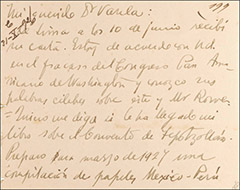 Mi querido Dr Varela:
de Lima a los 10 de junio recibí
su carta. Estoy de acuerdo con Ud.
en el fracaso del Congreso Pan Ame-
ricano de Washington y conozco sus
palabras sobre este y Mr Rowe
me diga si le ha llegado mi
libro sobre el Convento de Tepotzotlán.
Preparo para marzo de 1927 una
compilación de papeles Mexico-Perú